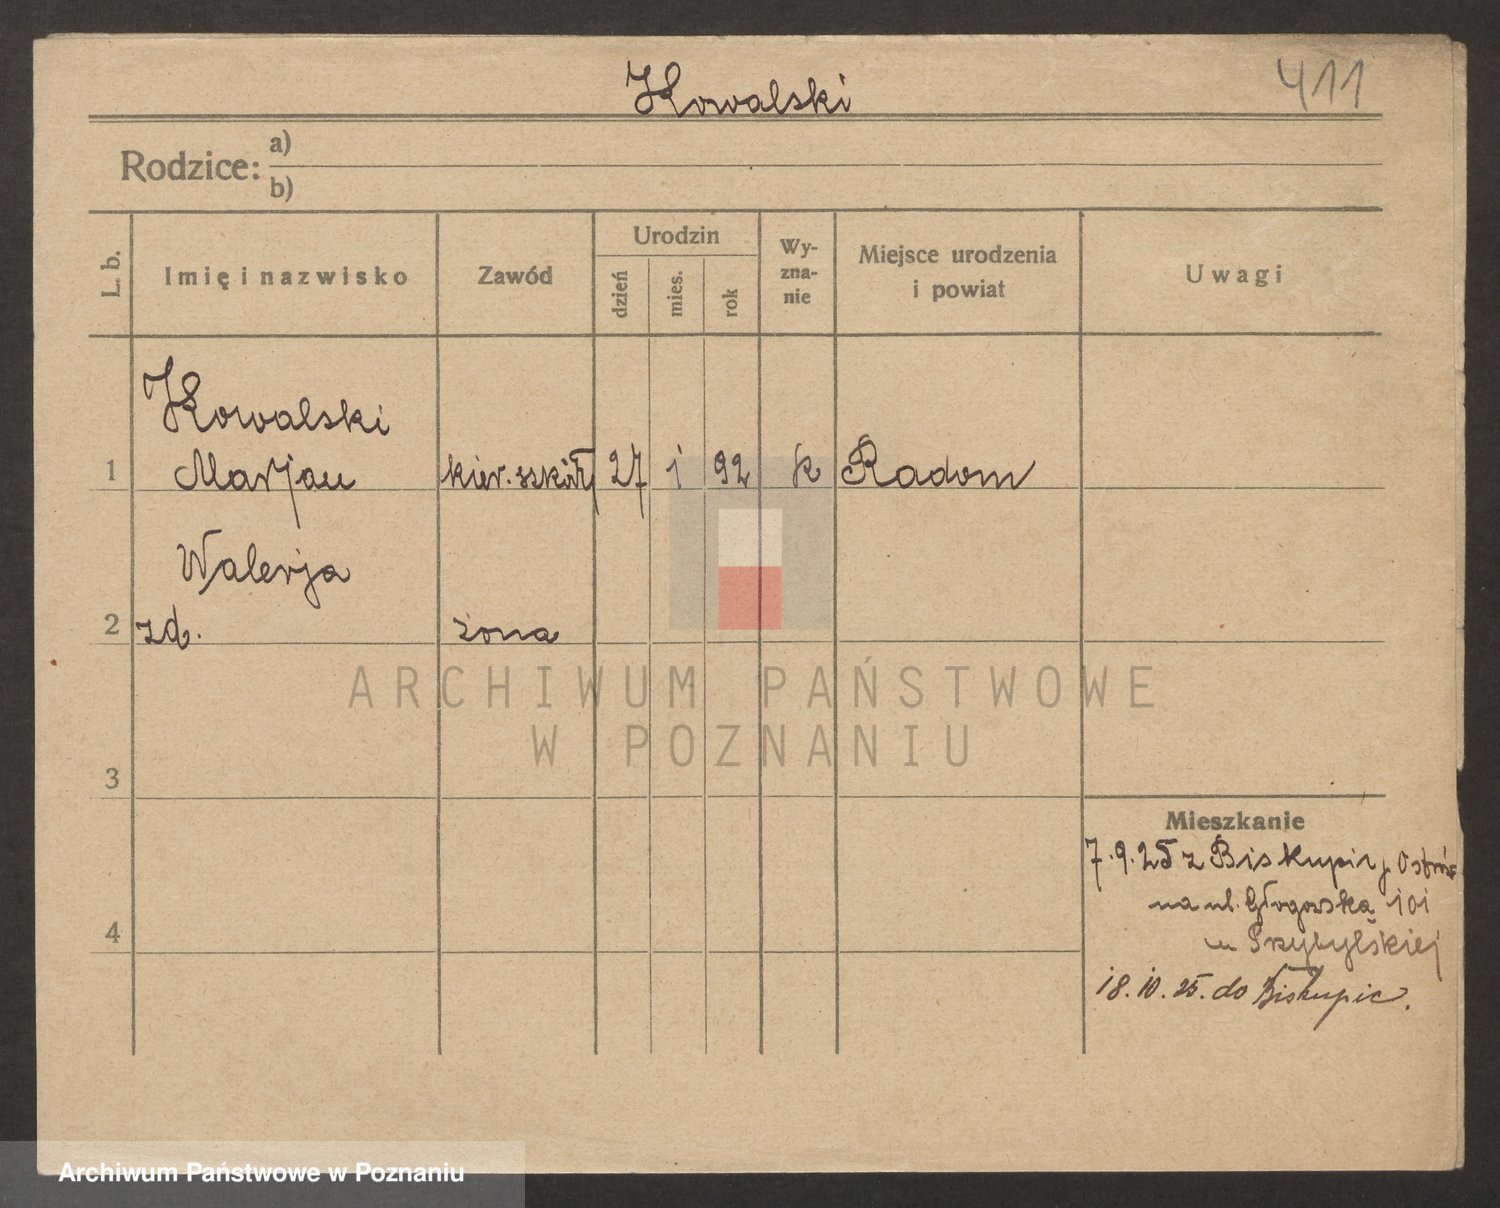 Kowalski
411
Rodzice: a)
b)
L. b.
Imię i nazwisko
Zawód
Urodzin
dzień
mies.
rok
Wy-
zna-
nie
Miejsce urodzenia
i powiat
Uwagi
Kowalski
1 Marjan kier. szkoły 27 1 92 k Radom
Walerja
2 zd. żona
ARCHIWUM PAŃSTWOWE
W POZNANIU
3
Mieszkanie
7.9.25 z Biskupic p. Ostrów
na ul. Głogowską 101
u Przybylskiej
4
18.10.25. do Biskupic.
Archiwum Państwowe w Poznaniu